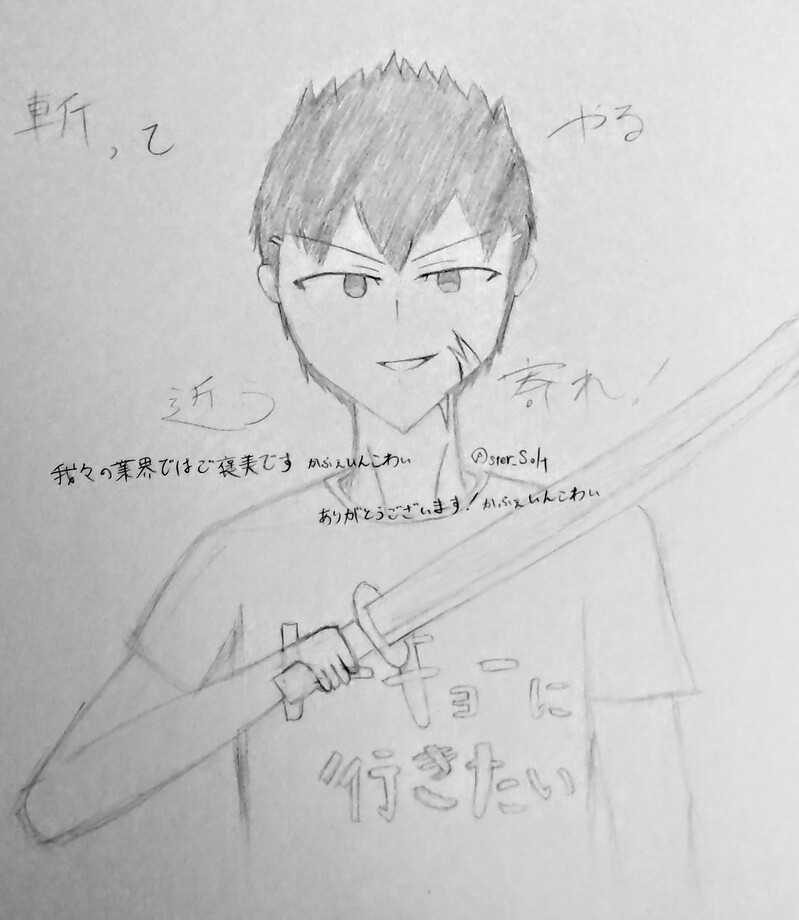 斬って やる
近う 寄れ!
我々の業界ではご褒美です かふぇいんこわい
ありがとうございます! かふぇいんこわい
トーキョーに
行きたい